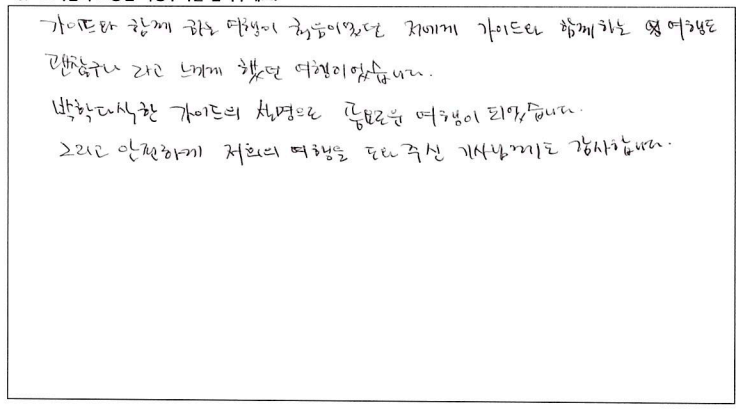 가이드와 함께 하는 여행이 처음이었던 저에게 가이드와 함께하는 여행도
괜찮구나 라고 느끼게 했던 여행이었습니다.
박학다식한 가이드의 설명으로 풍요로운 여행이 되었습니다.
그리고 안전하게 저희의 여행을 도와 주신 기사님께도 감사합니다.